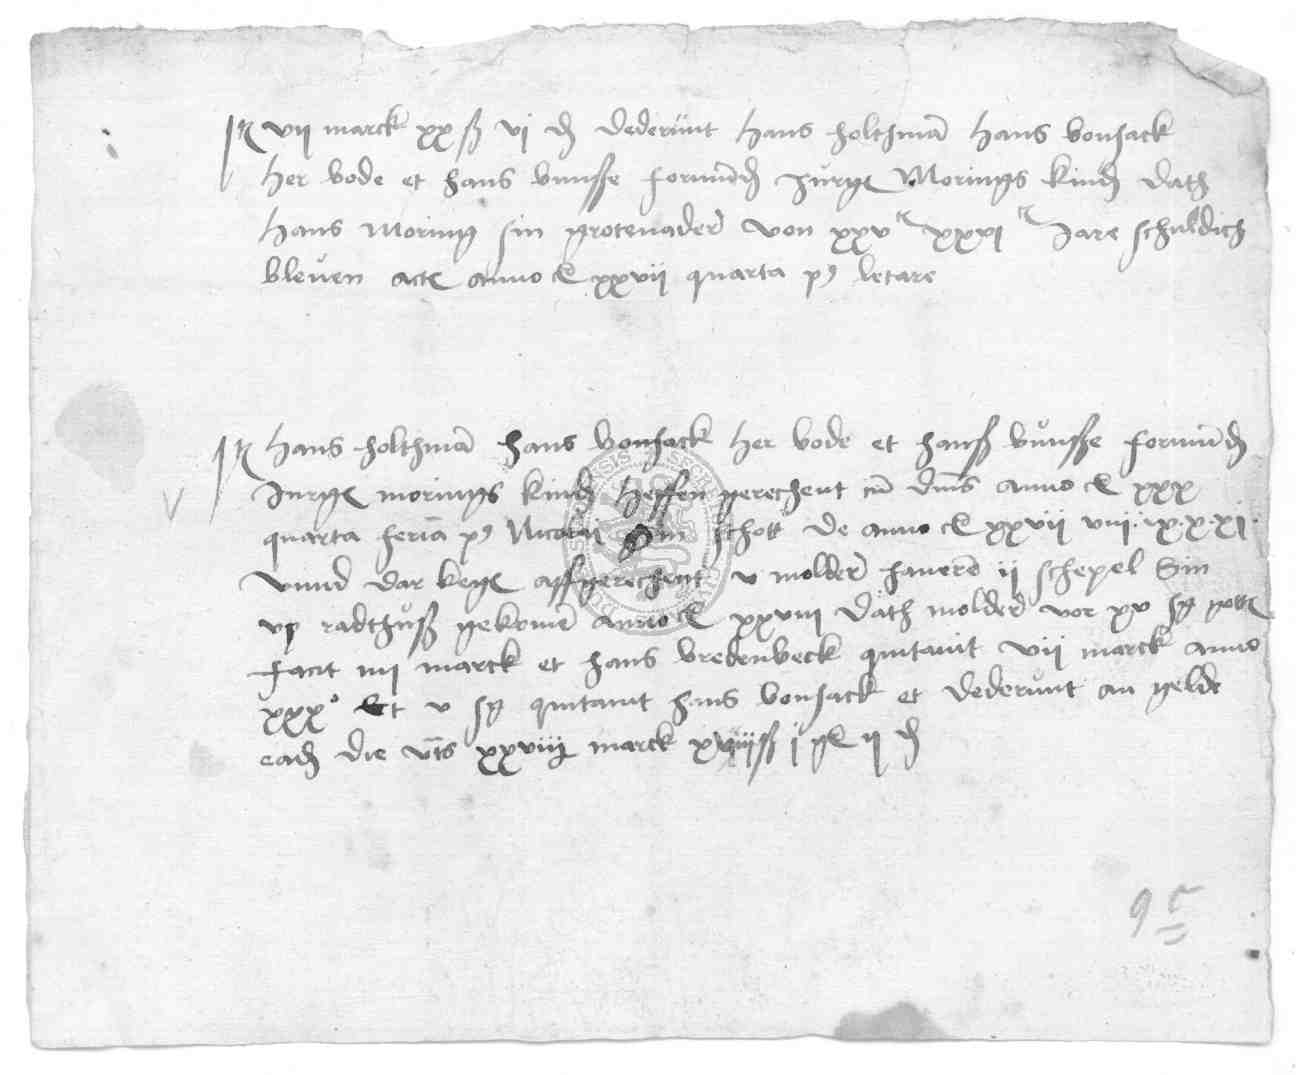 It vii marck xx ß vi d dederunt Hans Holthmā Hans Bonsack
Her Bode et Hans Bunsse formūd Jurgē Morings kind dath
Hans Moring sin grotevader von xxv xxvi Jare schuldich
bleven acte anno xxvii quarta p9 letare
It Hans Holthmā Hans Bonsack Her Bode et Hanß Bunsse formūd
Jurgē morings kind Heffen gerechent cū dns anno xxx
quarta feria p9 Nicolai schott de anno xxvii viii ix x xi
unnd dar kegē affgerechent v molder haverē ii schepel Sin
up radthuß gekomē anno xxviii dath molder vor xv
facit iiii marck et Hans Bredenbeck quitavit vii marck anno
xxx° Et v quitavit Hans Bonsack et dederunt an gelde
ead die xxviii marck ß ii d
95